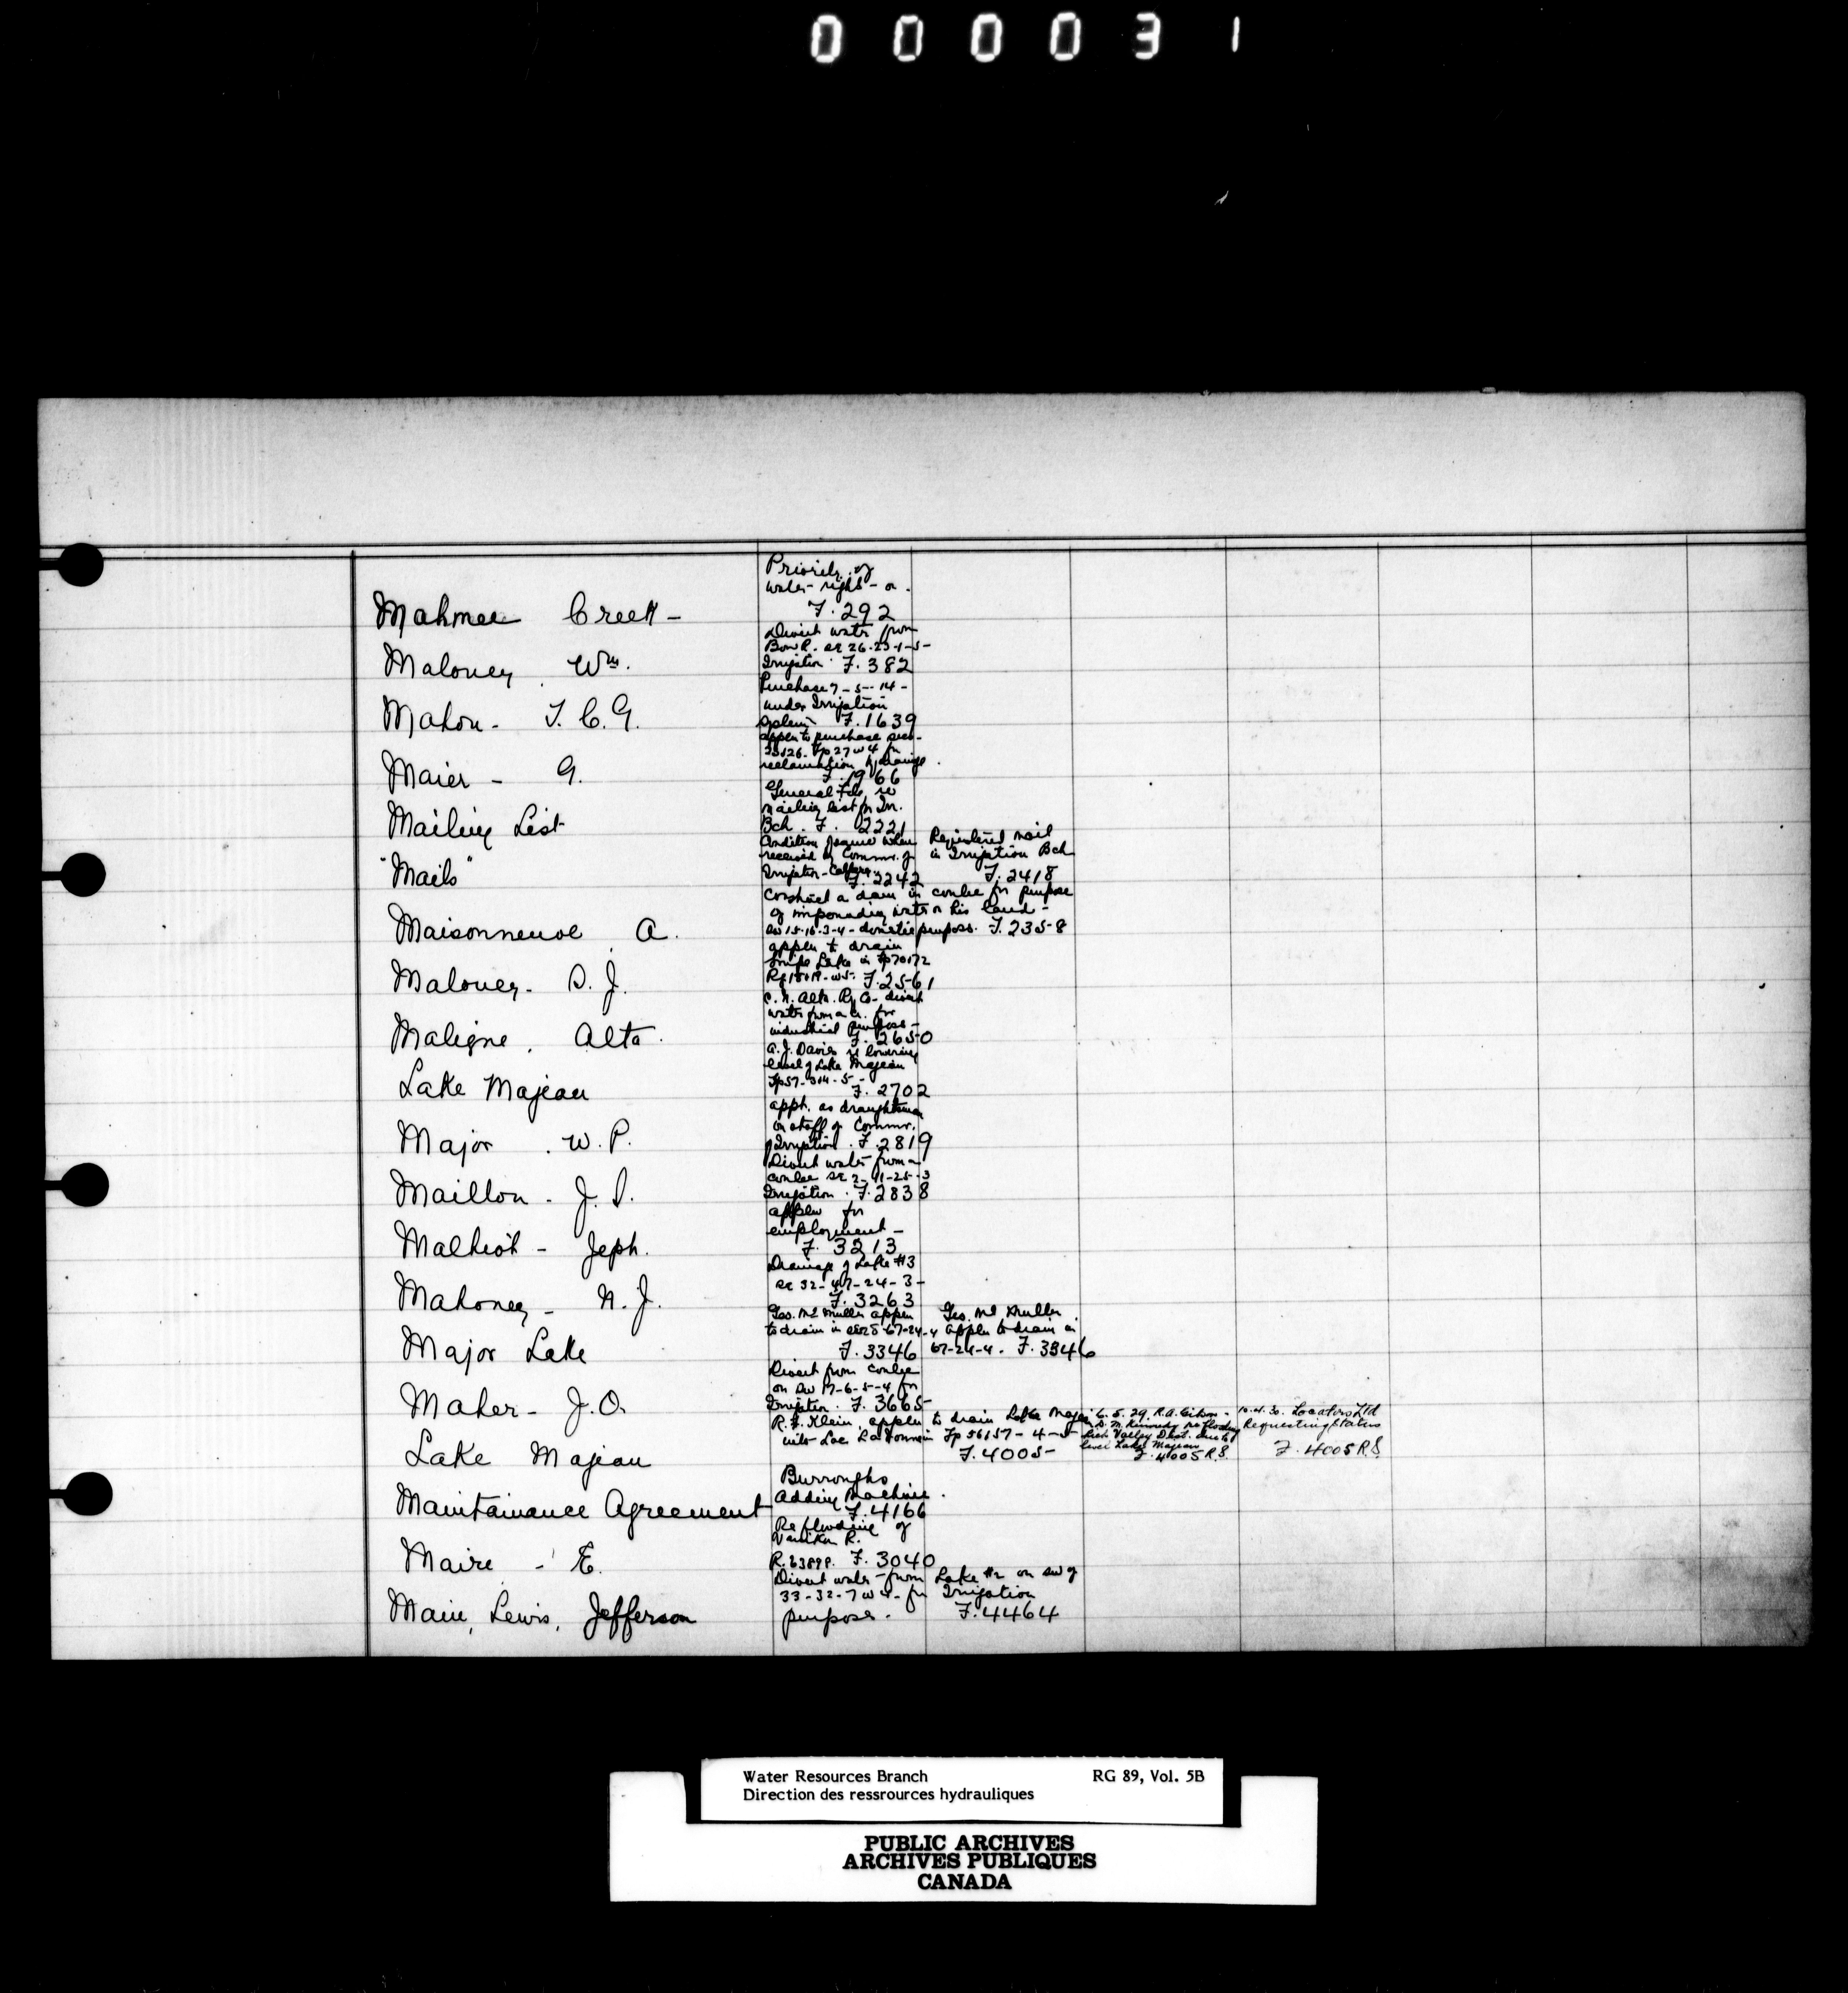 000031
Priority of
water right - on
Mahmee Creek - F. 292
Divert water from
Bow R. se 26-23-1-5-
Maloney Wm. Irrigation F. 382
Purchase 7-5-14-
under Irrigation
Mahon - T. C. G. System F. 1639
applen to purchase secs.
25 & 26. Tp 27 w 4 for
reclamation by drainage
Maier - G. F. 1966
General File re
mailing list for Irr.
Mailing List Bch. F. 2221
Condition found when Registered mail
received by Commr. of in Irrigation Bch
"Mails" Irrigation - Calgary F. 2242 F. 2418
Construct a dam in coulee for purpose
of impounding water on his land -
Maisonneuve A. sw 15-16-3-4 - domestic purposes. F. 2358
applen to drain
Snipe Lake in Tp 70 & 72
Maloney - D. J. Rg 18 & 19 - w5. F. 2561
C. N. Alta. Ry Co. divert
water from a Cr. for
industrial purposes -
Maligne, Alta. F. 2650
A. J. Davies re lowering
level of Lake Majeau
Tp 57-3&4-5-
Lake Majeau F. 2702
appt. as draughtsman
on staff of Commr.
Major W. P. of Irrigation. F. 2819
Divert water from a
coulee se 2-11-25-3
Maillon - J. D. Irrigation. F. 2838
applen for
employment -
Malhiot - Jeph. F. 3213
Drainage of Lake #3
se 32-47-24-3-
Mahoney - N. J. F. 3263
Geo. McMullen applen Geo. McMullen
to drain in 67-24-4 applen to drain in
Major Lake F. 3346 67-24-4. F. 3346
Divert from coulee
on sw 17-6-5-4 for
Maher - J. O. Irrigation. F. 3665
R. F. Klein, applen to drain Lake Majeau 6.5.29. R.A. Gibson - 10.4.30. Locators Ltd
into Lac La Nonne in Tp 56 & 57-4-5 D. M. Kennedy re flooding Requesting status
Rich Valley Dist. due to
level Lake Majeau
Lake Majeau F. 4005 F. 4005 R.S. F. 4005 R.S.
Burroughs
Adding Machine.
Maintainance Agreement F. 4166
Re flooding of
R.
Maire - E. R. 63898. F. 3040
Divert water from Lake #2 on sw of
33-32-7 w 4 - for Irrigation
Main, Lewis, Jefferson purposes. F. 4464
Water Resources Branch RG 89, Vol. 5B
Direction des ressrources hydrauliques
PUBLIC ARCHIVES
ARCHIVES PUBLIQUES
CANADA